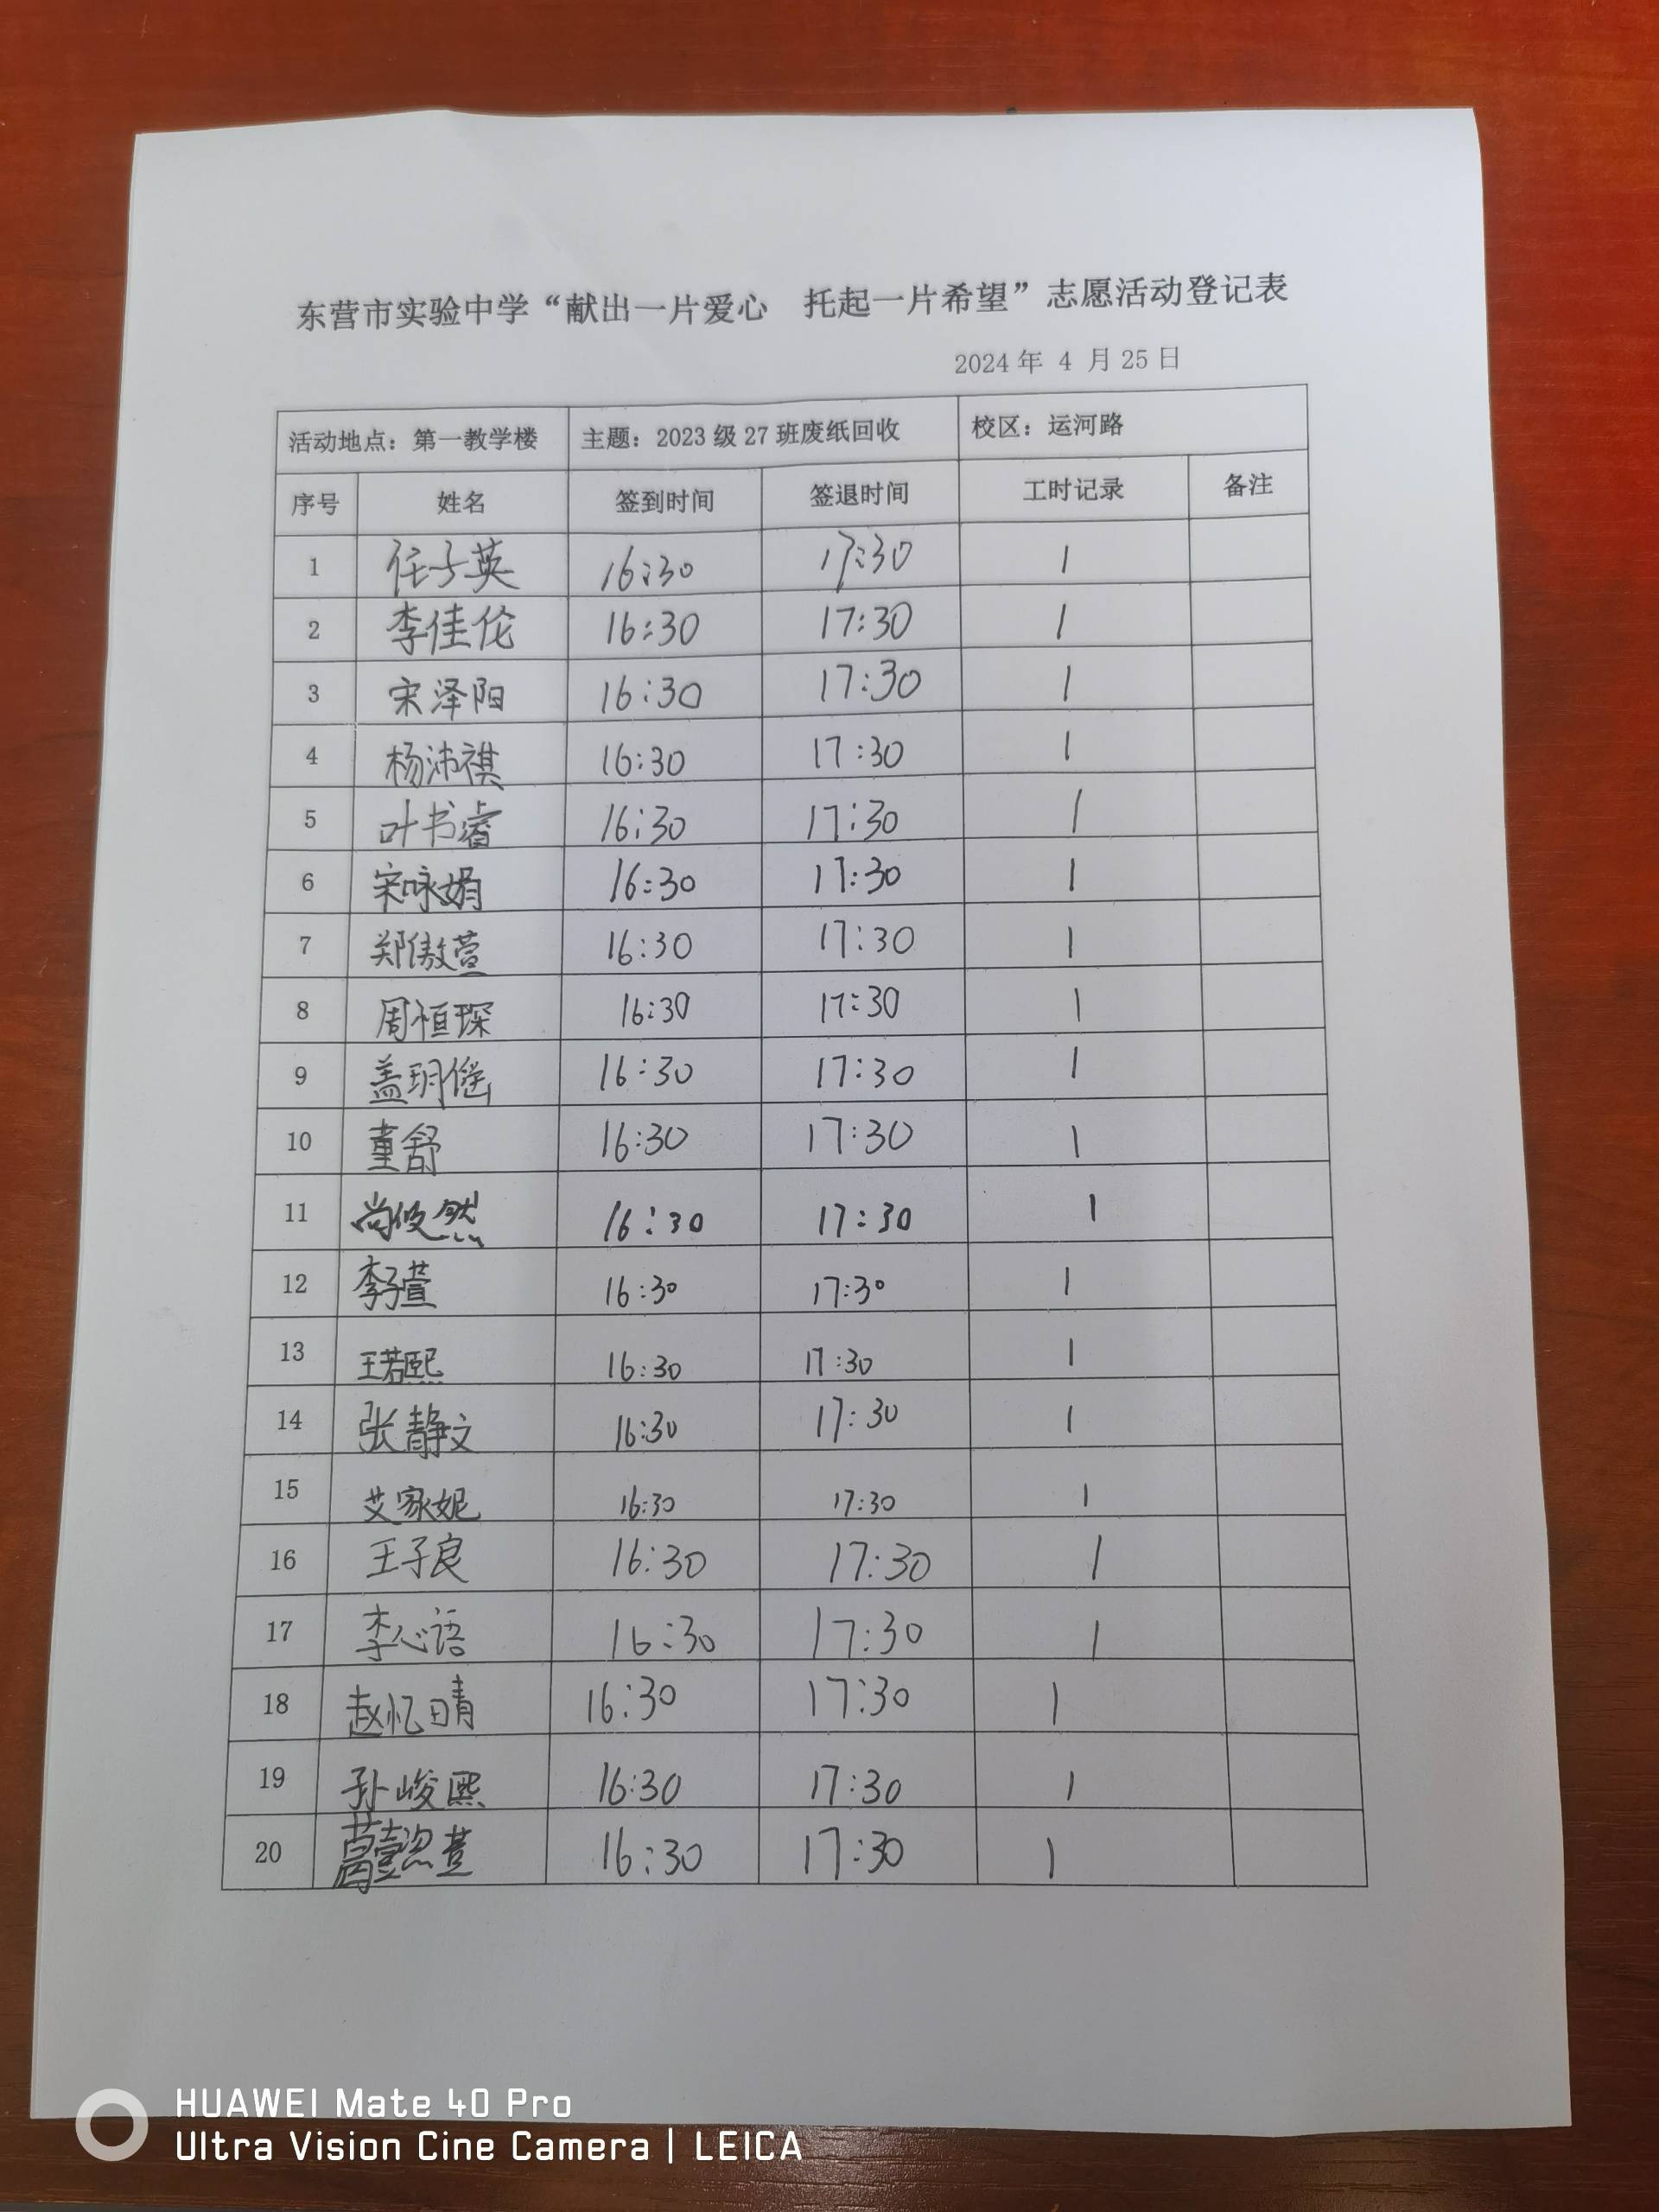 东营市实验中学“献出一片爱心 托起一片希望”志愿活动登记表
2024年 4 月 25 日
活动地点：第一教学楼 主题：2023 级 27 班废纸回收 校区：运河路
序号 姓名 签到时间 签退时间 工时记录 备注
1 任子英 16:30 17:30 1
2 李佳伦 16:30 17:30 1
3 宋泽阳 16:30 17:30 1
4 杨沛祺 16:30 17:30 1
5 叶书睿 16:30 17:30 1
6 宋咏娟 16:30 17:30 1
7 郑傲萱 16:30 17:30 1
8 周恒琛 16:30 17:30 1
9 盖玥 16:30 17:30 1
10 董舒 16:30 17:30 1
11 尚俊然 16:30 17:30 1
12 李子萱 16:30 17:30 1
13 王若熙 16:30 17:30 1
14 张静文 16:30 17:30 1
15 艾家妮 16:30 17:30 1
16 王子良 16:30 17:30 1
17 李心语 16:30 17:30 1
18 赵忆晴 16:30 17:30 1
19 孙峻熙 16:30 17:30 1
20 16:30 17:30 1
HUAWEI Mate 40 Pro
Ultra Vision Cine Camera | LEICA